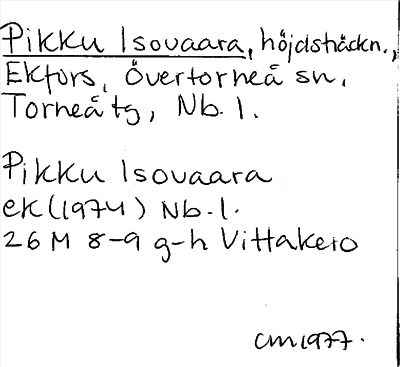 Pikku Isovaara, höjdsträckn.,
Ekfors, Övertorneå sn,
Torneå tg, Nb. l.
Pikku Isovaara
ek (1974) Nb. l.
26 M 8-9 g-h Vittakero
CM 1977.